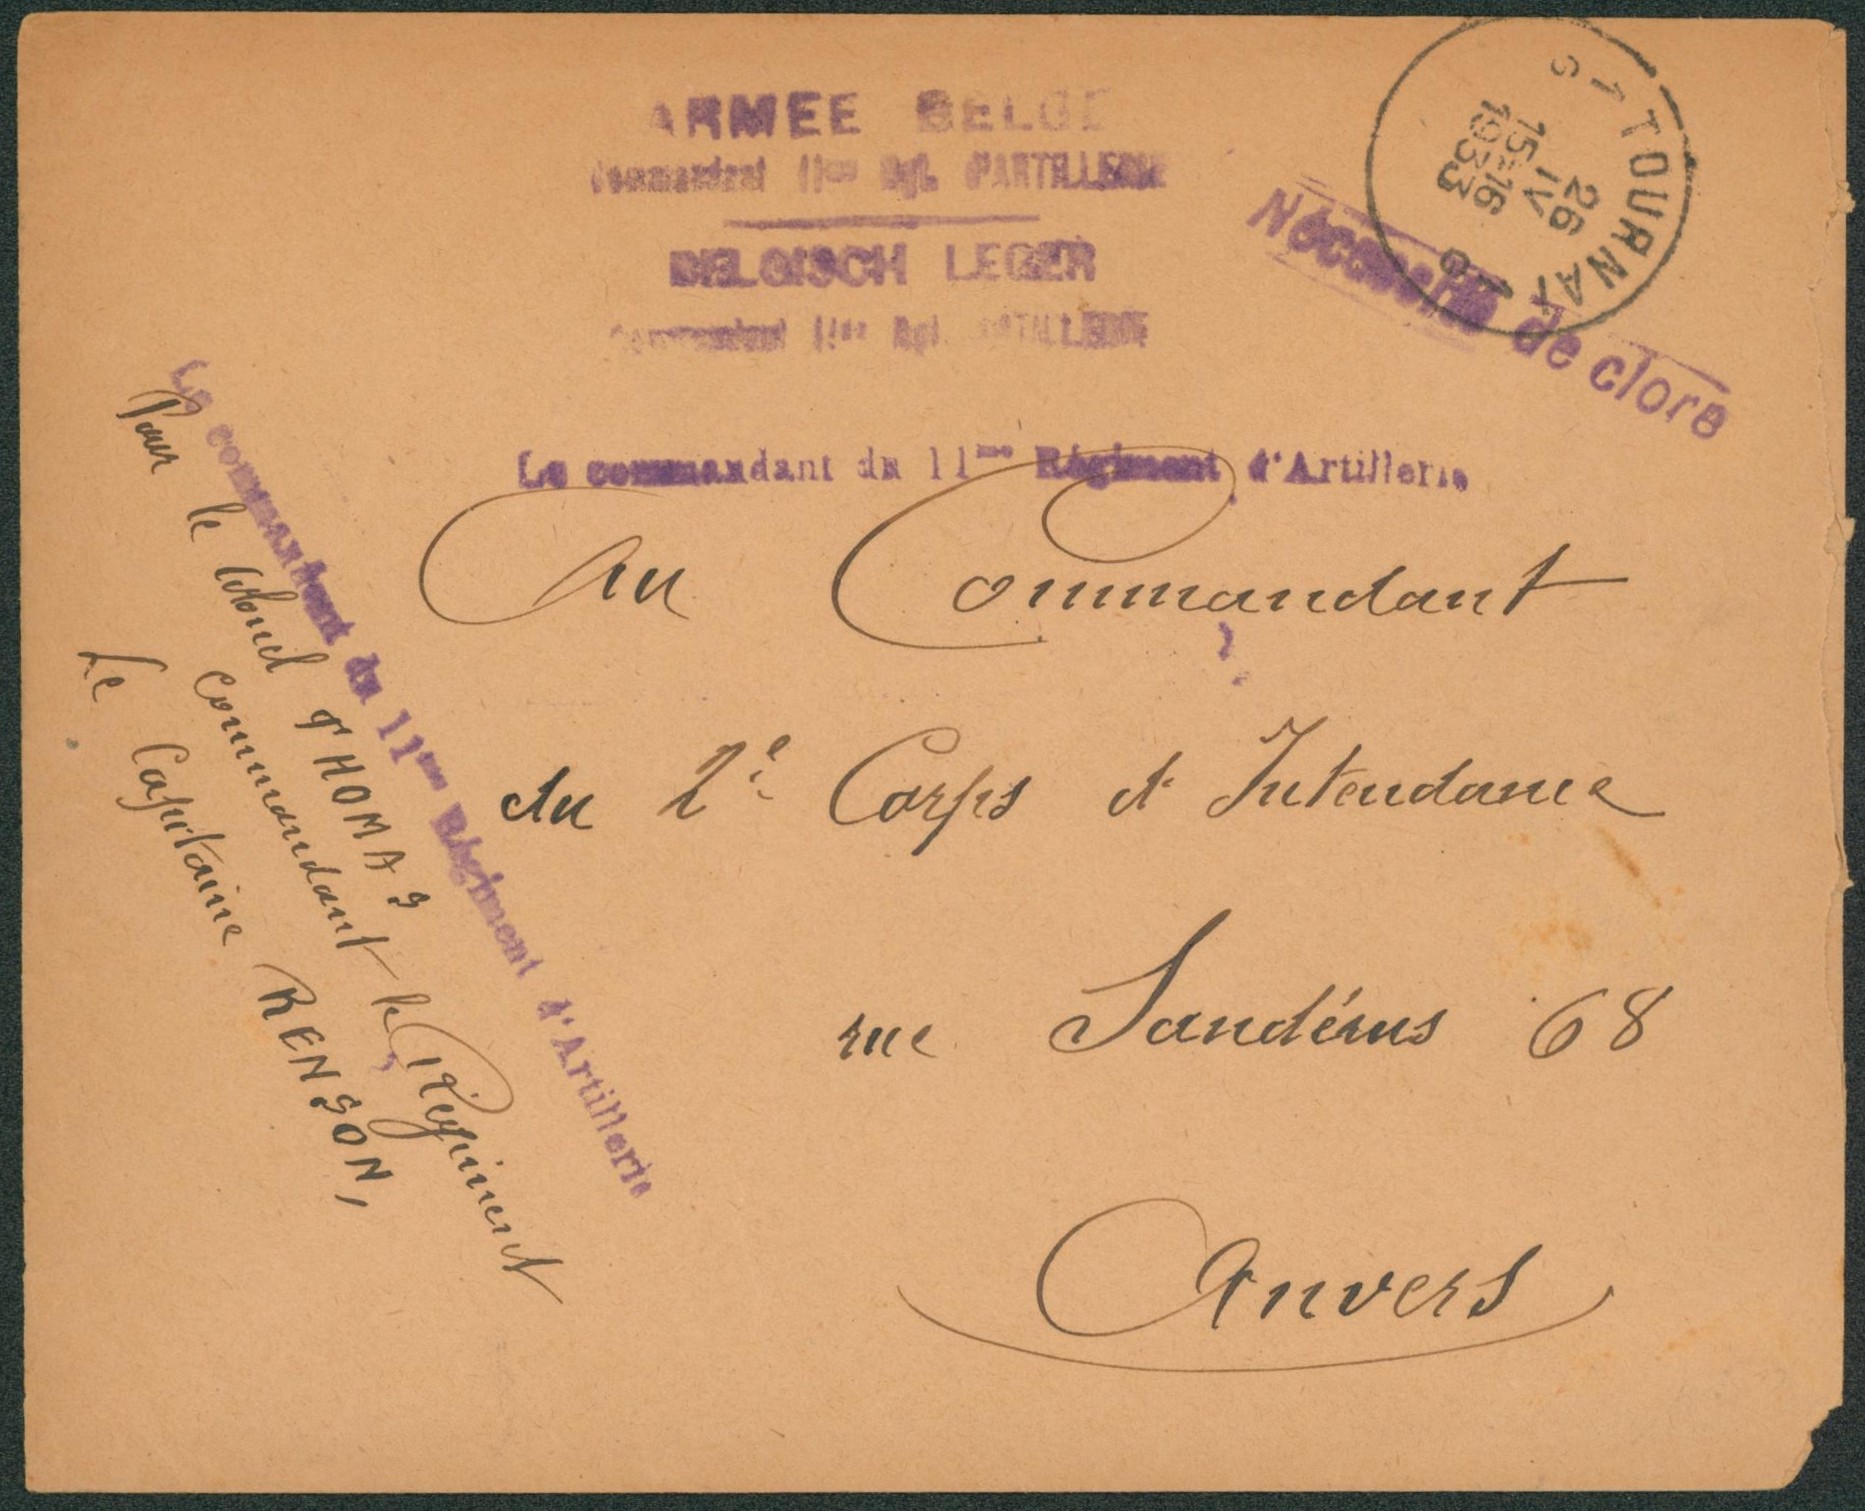 ARMEE BELGE
Commandant 11me Rgt. d'ARTILLERIE
BELGISCH LEGER
Commandant 11de Rgt. ARTILLERIE
1 TOURNAI 1
G G
26
IV
15-16
1933
Nécessité de clore
Le commandant du 11me Régiment d'Artillerie
Au Commandant
du 2e Corps d'Intendance
rue Sandérus 68
Anvers
Le commandant du 11me Régiment d'Artillerie
Pour le Colonel THOMAS
commandant le Régiment
Le Capitaine RENSON,